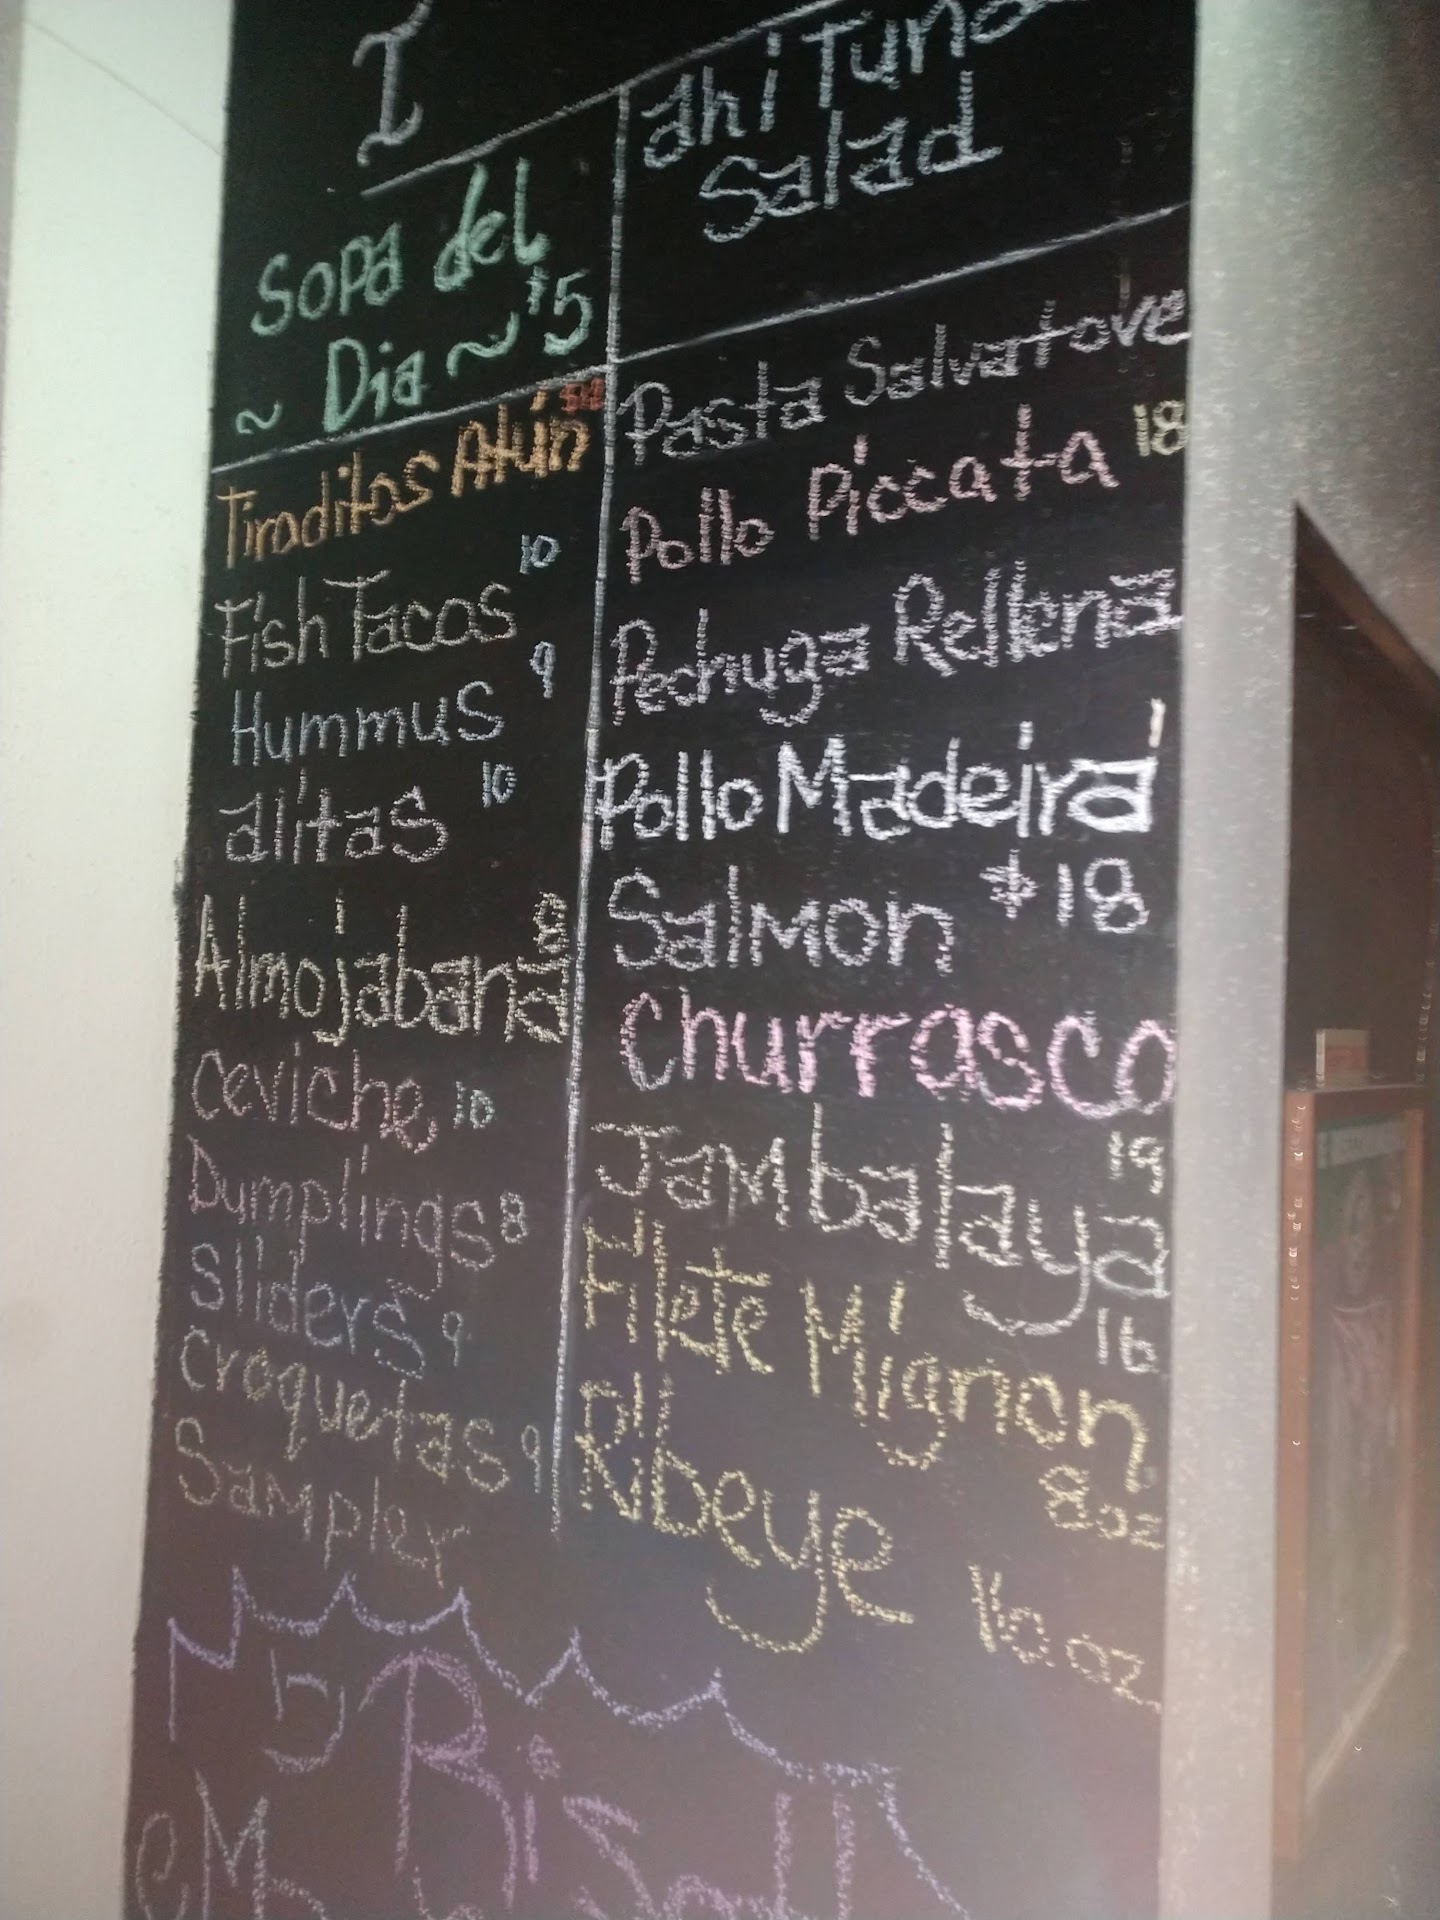 Sopa del
~ Dia ~ $5
Tiraditos Atún
Fish Tacos 10
Hummus 9
alitas 10
Almojabana 8
Ceviche 10
Dumplings 8
Sliders 9
Croquetas 9
Sampler
ahi Tuna
Salad
Pasta Salvatore
Pollo Piccata 18
Pechuga Rellena
Pollo Madeira
Salmon $18
Churrasco
Jambalaya 19
Filete Mignon 16
8oz
Ribeye
16 oz